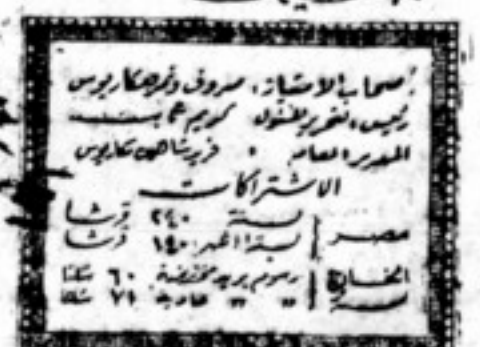 أصحاب الامتياز: صروف ونمر ومكاريوس
رئيس التحرير المسئول كريم ثابت
المدير العام : فريد شاهين مكاريوس
الاشتراكات
مصر | سنة ٢٤٠ قرشا
ستة اشهر ١٤٠ قرشا
الخارج | رسوم بريد مخفضة ٦٠ شلنا
سنة | " " عادية ٧١ شلنا